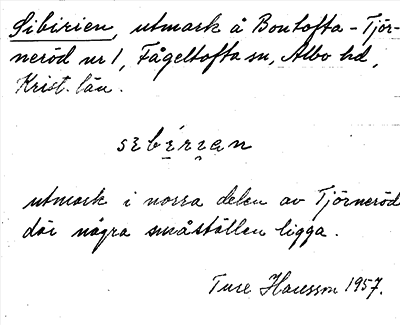 Sibirien, utmark å Bontofta-Tjör-
neröd nr 1, Fågeltofta sn, Albo hd,
Krist. län.
sɪbérɪan
utmark i norra delen av Tjörneröd
där några småställen ligga.
Ture Hansson 1957.